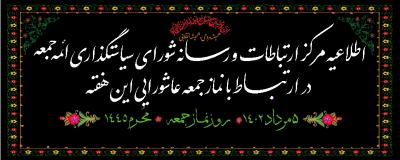 اطلاعیه مرکز ارتباطات و رسانه شورای سیاستگذاری ائمه جمعه
در ارتباط با نماز جمعه عاشورایی این هفته
۵ مرداد ۱۴۰۲ * روز نماز جمعه * محرم ۱۴۴۵